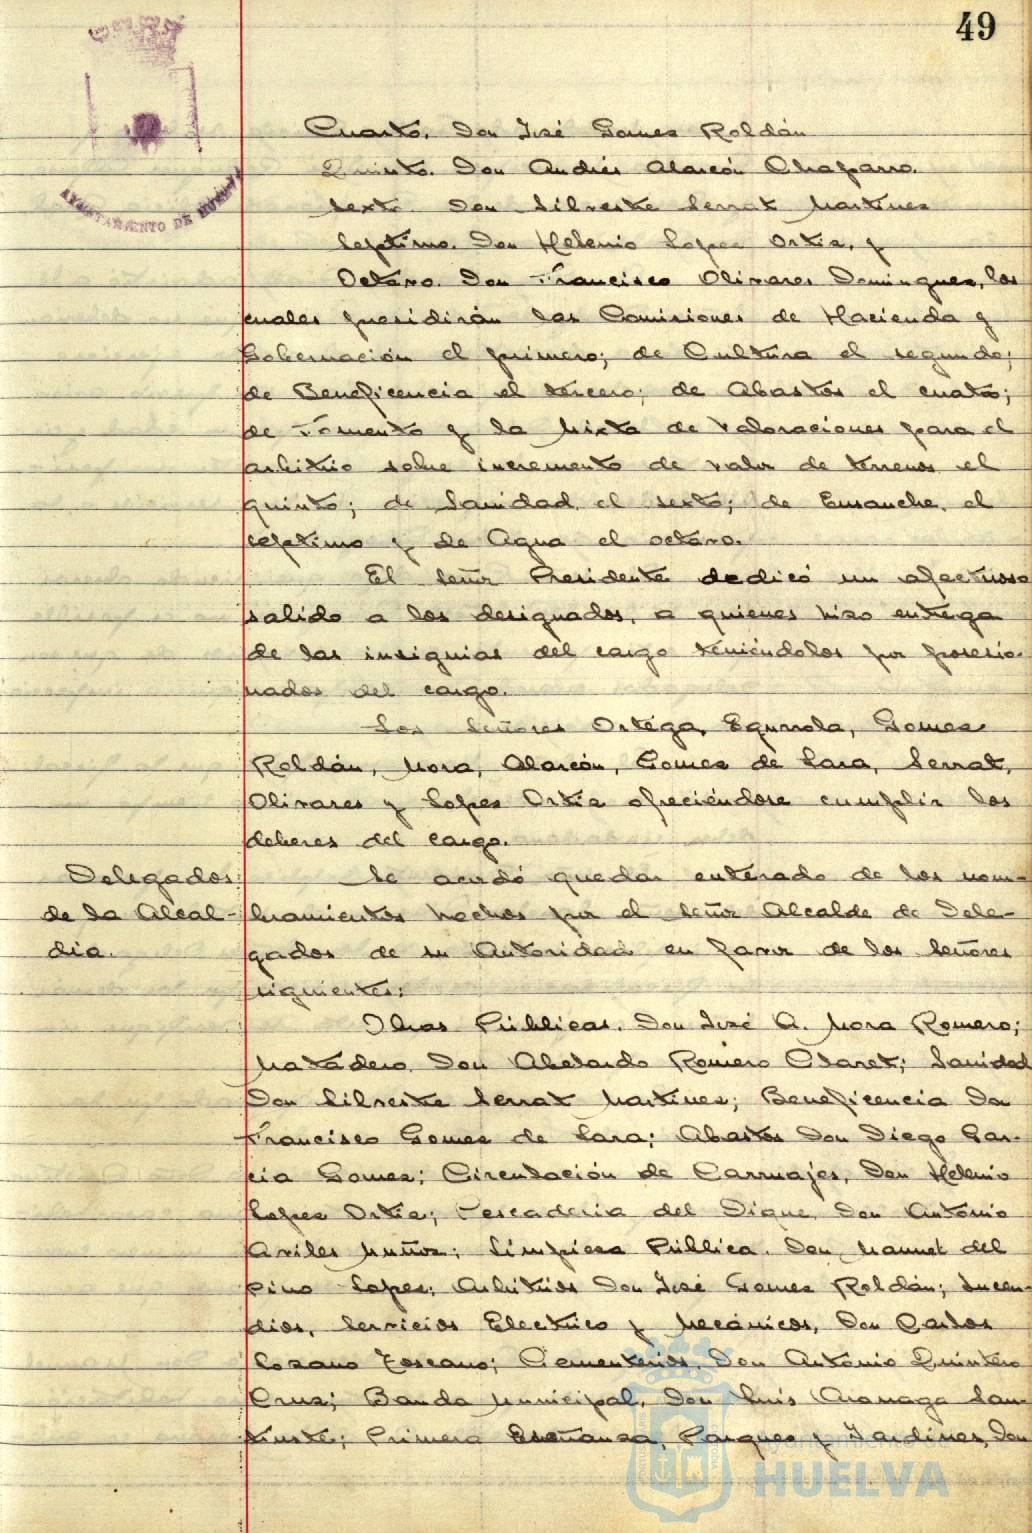 49
AYUNTAMIENTO DE HUELVA
Cuarto. Don José Gomez Roldán
Quinto. Don Andrés Alarcón Chaparro.
Sexto. Don Silvestre Serrat Martinez
Septimo. Don Helenio Lopez Ortiz, y
Octavo. Don Francisco Olivares Dominguez, los
cuales presidirán las Comisiones de Hacienda y
Gobernación el primero; de Cultura el segundo;
de Beneficencia el tercero; de Abastos el cuarto;
de Fomento y la Mixta de Valoraciones para el
arbitrio sobre incremento de valor de terrenos el
quinto; de Sanidad, el sexto; de Ensanche, el
septimo y de Agua el octavo.
El Señor Presidente dedicó un afectuoso
salido a los designados, a quienes hizo entrega
de las insignias del cargo teniéndolos por posesio-
nados del cargo.
Los Señores Ortega, Egurrola, Gomez
Roldán, Mora, Alarcón, Gomez de Lara, Serrat,
Olivares y Lopez Ortiz ofreciéndose cumplir los
deberes del cargo.
Delegados
de la Alcal-
dia.
Se acordó quedar enterado de los nom-
bramientos hechos por el Señor Alcalde de Dele-
gados de su Autoridad en favor de los Señores
siguientes:
Obras Públicas. Don José A. Mora Romero;
Matadero. Don Abelardo Romero Claret; Sanidad
Don Silvestre Serrat Martinez; Beneficencia Don
Francisco Gomez de Lara; Abastos Don Diego Gar-
cia Gomez; Circulación de Carruajes, Don Helenio
Lopez Ortiz; Pescaderia del Dique, Don Antonio
Aviles Muñoz; Limpieza Pública. Don Manuel del
Pino Lopez; Arbitrios Don José Gomez Roldán; Incen-
dios, Servicios Electrico y Mecánicos, Don Carlos
Lozano Toscano; Cementerios, Don Antonio Quintero
Cruz; Banda Municipal, Don Luis Aranaga San-
Primera Enseñanza, Parques y Jardines, Don
Ayuntamiento de
HUELVA